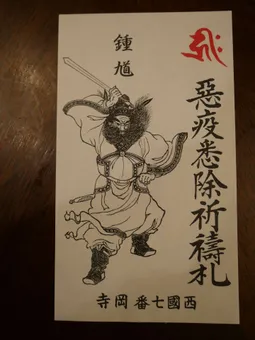 惡疫悉除祈禱札
鍾馗
西國七番岡寺